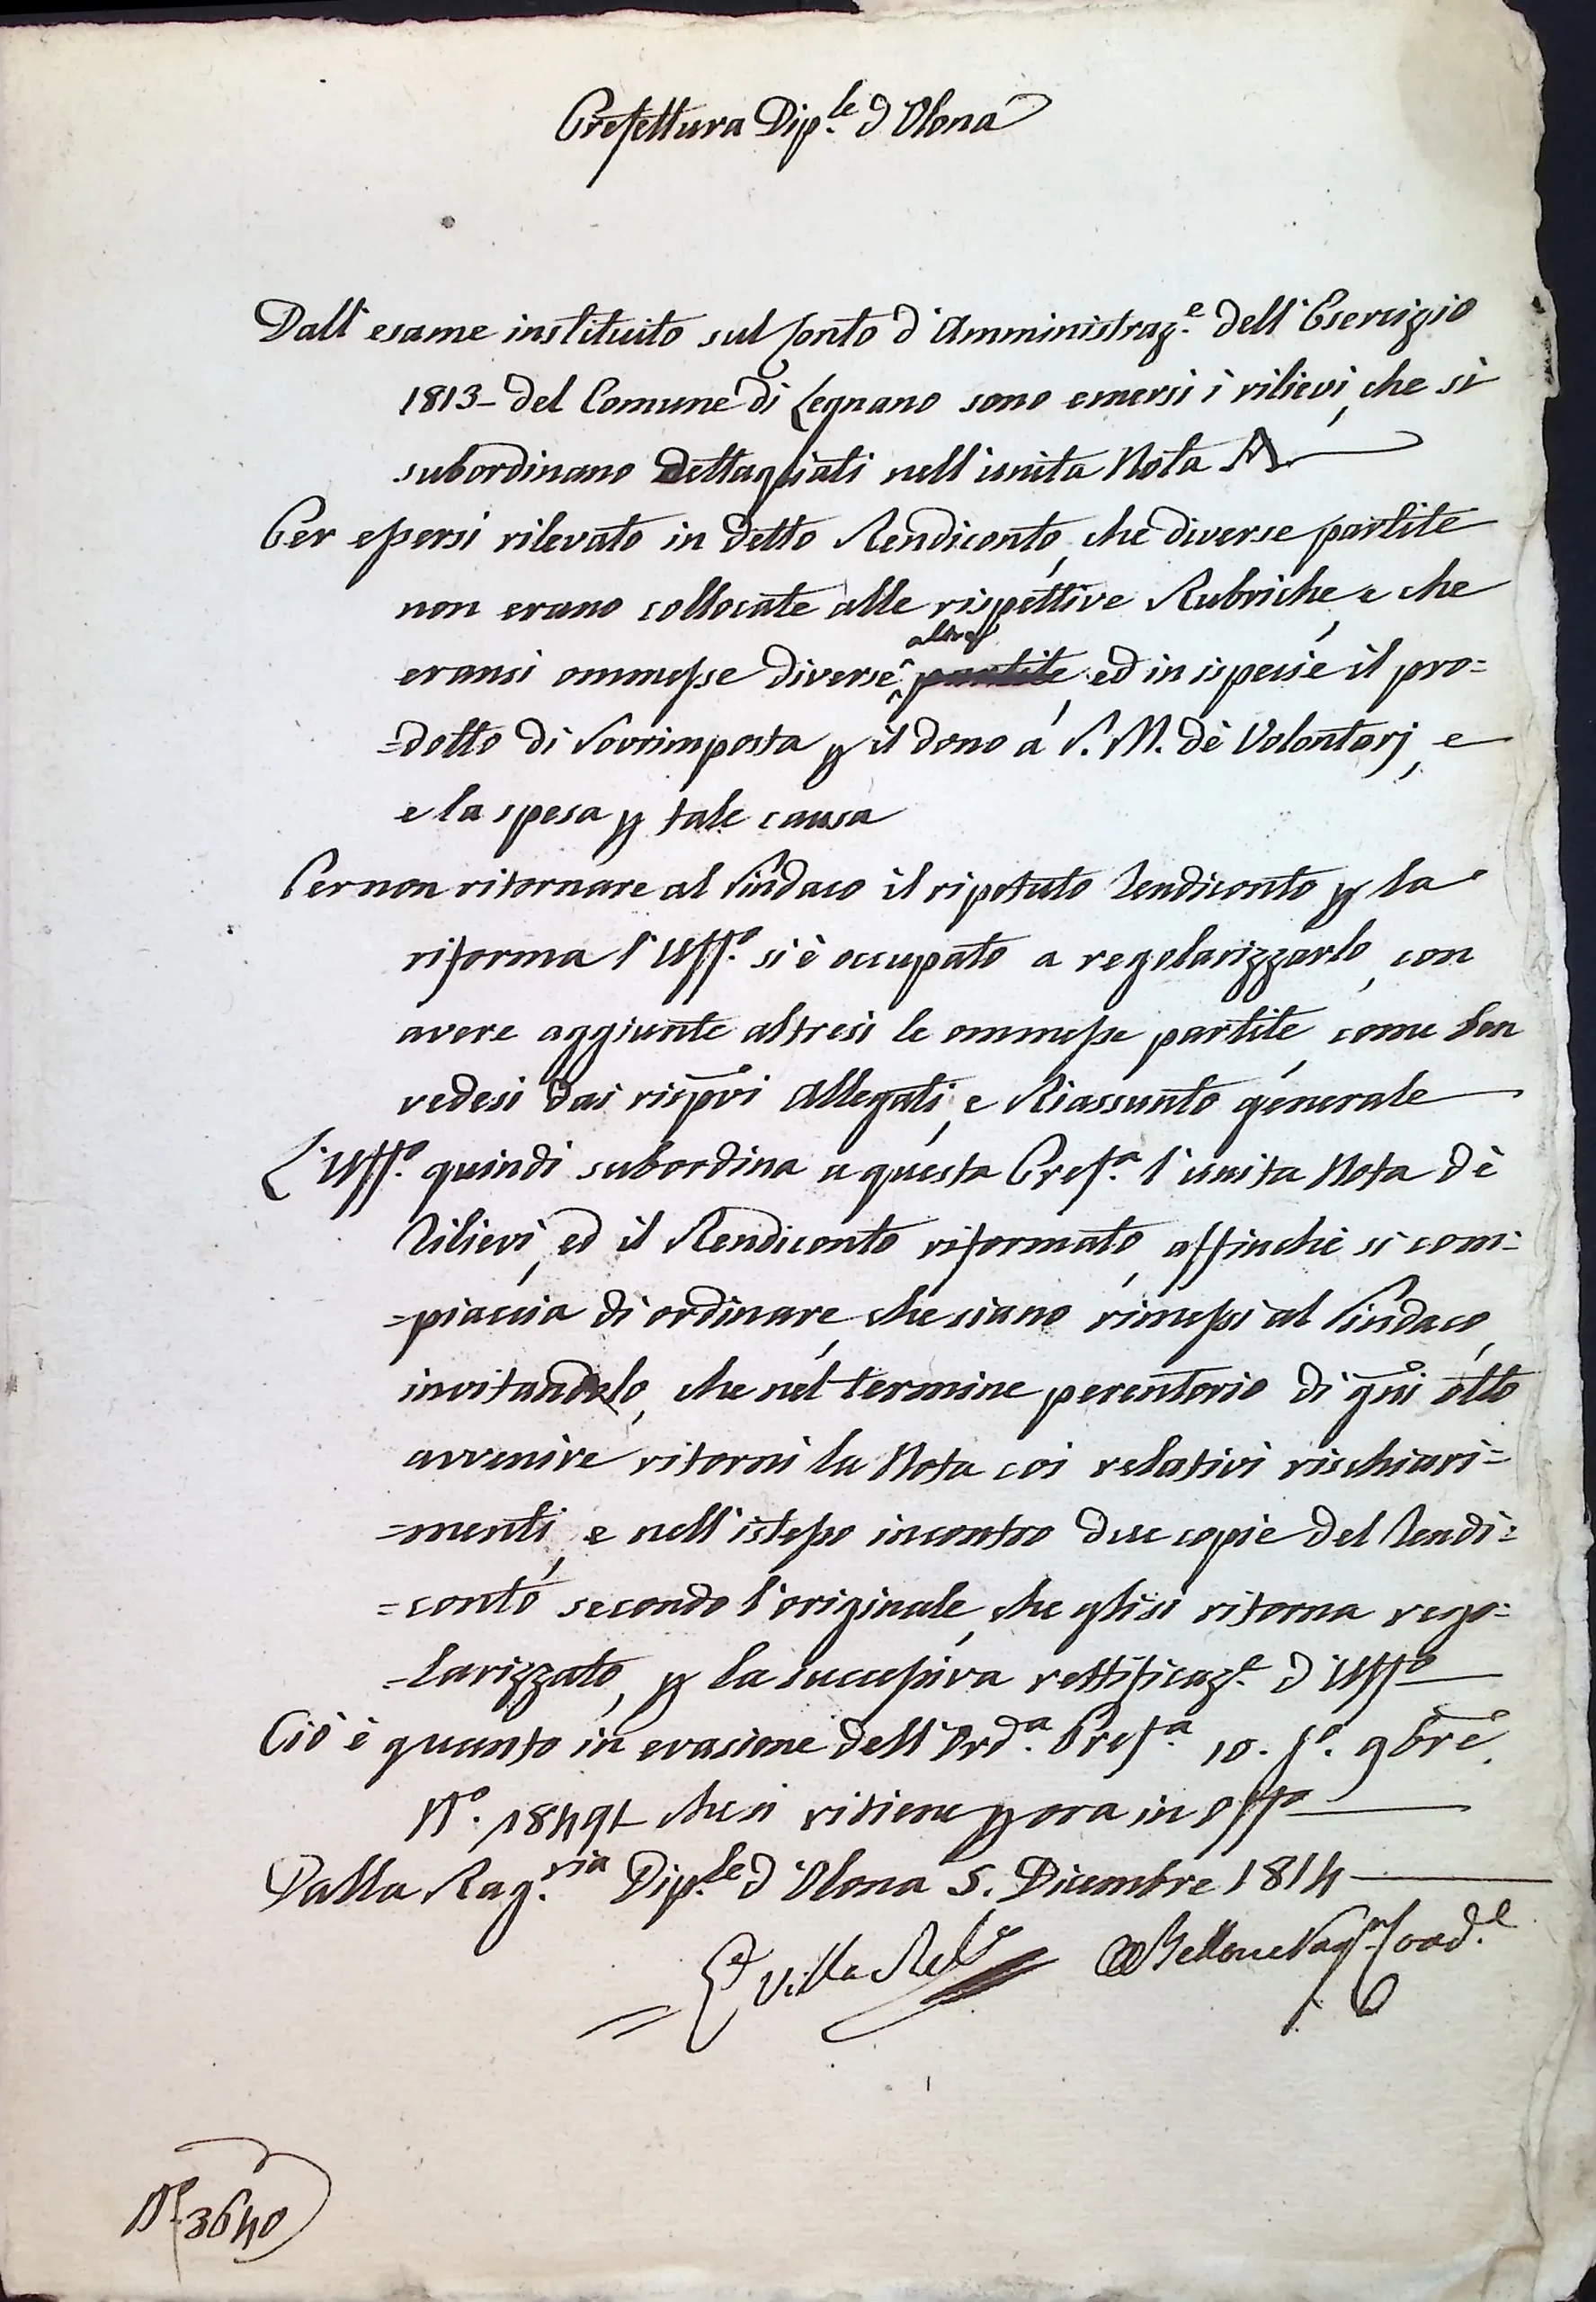 Prefettura Dip.le d'Olona
Dall'esame instituito sul Conto d'Amministraz.e dell'Esercizio
1813- del Comune di Legnano sono emersi i rilievi, che si
subordinano dettagliati nell'unita Nota A.
Per essersi rilevato in detto Rendiconto, che diverse partite
non erano collocate alle rispettive Rubriche, e che
altre
eransi ommesse diverse partite, ed in ispecie il pro=
=dotto di Sovrimposta p il dono a S. M. de' Volontarj, e
e la spesa p tale causa
Per non ritornare al Sindaco il ripetuto Rendiconto p la
riforma l'Uff.o si è occupato a regolarizzarlo, con
avere aggiunte altresì le ommesse partite, come ben
vedesi dai rispvi Allegati, e Riassunto generale
L'Uff.o quindi subordina a questa Pref.a l'unita Nota de'
Rilievi, ed il Rendiconto riformato, affinchè si com=
=piaccia di ordinare, che siano rimessi al Sindaco,
invitandolo, che nel termine perentorio di gni otto
avvenire ritorni la Nota coi relativi rischiari=
=menti, e nell'istesso incontro due copie del Rendi=
=conto secondo l'originale, che gli si ritorna rego=
=larizzato, p la successiva rettificaz.e d'Uff.o
Ciò è quanto in evasione dell'Ord.a Pref.a 10. 9bre
N.o che si ritiene p ora in Off.o
Dalla Rag.ria Dip.le d'Olona 5. Dicembre 1814
Villa Coad.e
N.o 3640